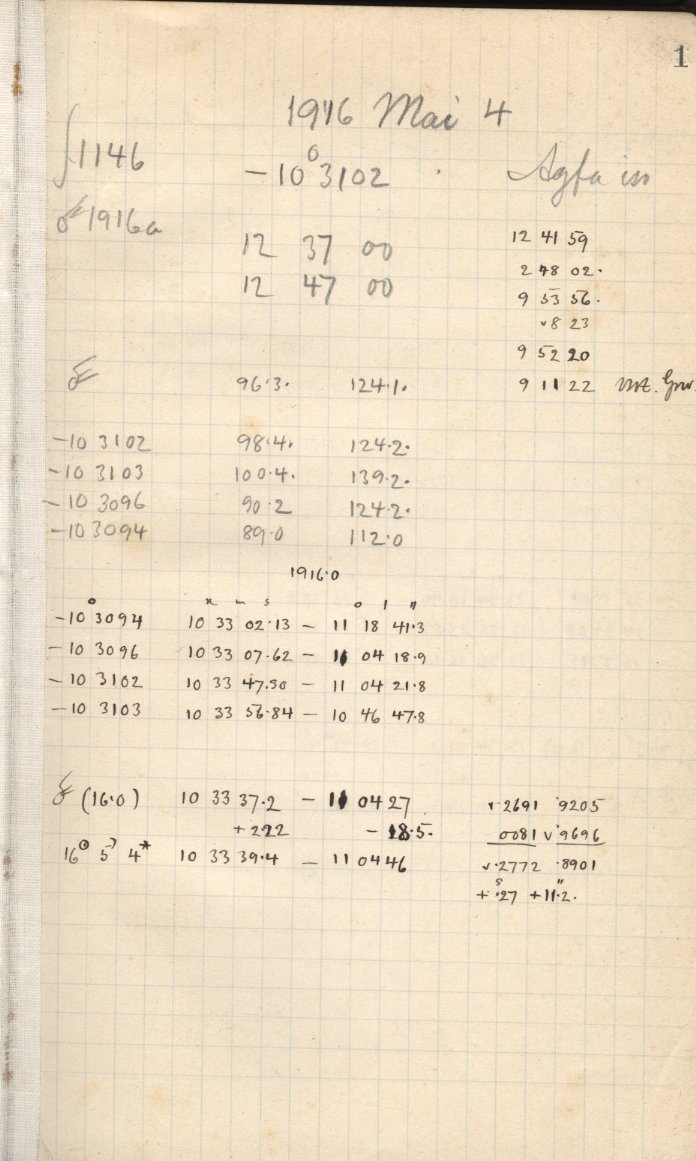 1
1916 Mai 4
1146 -10° 3102 Agfa iso
1916a
12 37 00 12 41 59
12 47 00 2 48 02.
9 53 56.
v8 23
9 52 20
96.3. 124.1. 9 11 22 mt. Grw.
-10 3102 98.4. 124.2.
-10 3103 100.4. 139.2.
-10 3096 90.2 124.2.
-10 3094 89.0 112.0
1916.0
h m s o ' "
-10° 3094 10 33 02.13 - 11 18 41.3
-10 3096 10 33 07.62 - 11 04 18.9
-10 3102 10 33 47.50 - 11 04 21.8
-10 3103 10 33 56.84 - 10 46 47.8
(16.0) 10 33 37.2 - 11 04 27 v.2691 .9205
+ 2.22 - 18.5. 0081 v.9696
16 5 4 10 33 39.4 - 11 04 46 v.2772 .8901
+.27 +11.2.